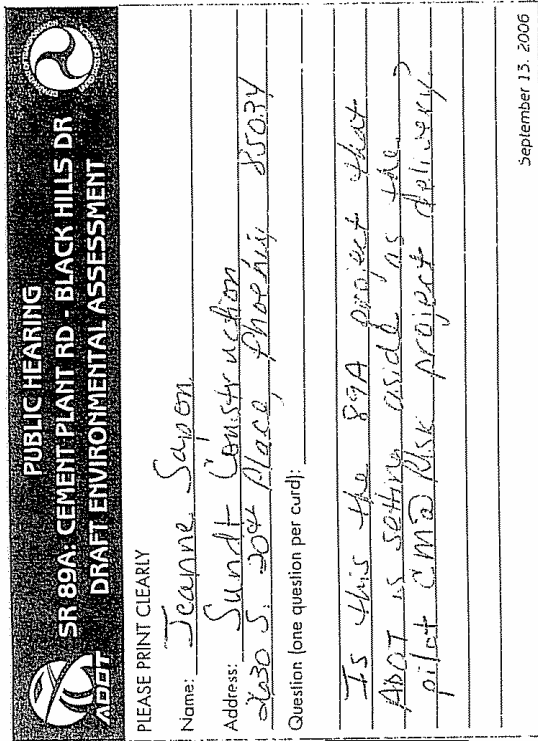 PUBLIC HEARING
SR 89A: CEMENT PLANT RD - BLACK HILLS DR
DRAFT ENVIRONMENTAL ASSESSMENT
ADOT
PLEASE PRINT CLEARLY
Name: Jeanne Sapon
Address: Sundt Construction
2630 S. 20th Place, Phoenix 85034
Question (one question per card):
Is this the 89A project that
ADOT is setting aside as the
pilot CM@Risk project delivery?
September 13, 2006